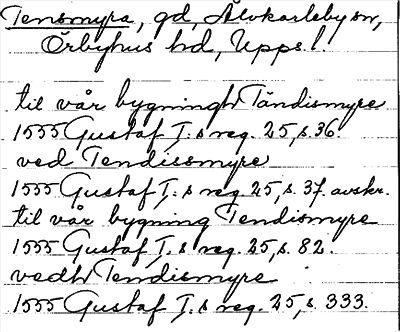 Tensmyra, gd, Älvkarleby sn,
Örbyhus hd, Upps. l.
til vår bygningh Tändismyre
1555 Gustaf I:s reg. 25, s. 36.
ved Tendissmyre
1555 Gustaf I:s reg. 25, s. 37. avskr.
til vår bygning Tendismyre
1555 Gustaf I:s reg. 25, s. 82.
vedh Tendismyre
1555 Gustaf I:s reg. 25, s. 333.